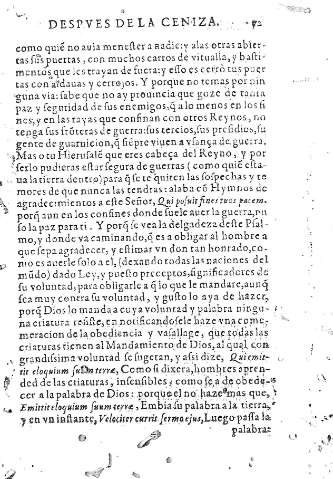 DESPVES DE LA CENIZA. 42
como quiē no auia menester a nadie: y a las otras abier-
tas sus puertas, con muchos carros de vitualla, y basti-
mentos que les trayan de fuera: y esso es cerrò tus puer
tas con aldauas y cerrojos. Y porque no temas por nin
guna via: sabe que no ay prouincia que goze de tanta
paz y seguridad de sus enemigos, q̃ a lo menos en los fi
nes, y en las rayas que confinan con otros Reynos, no
tenga sus frōteras de guerra: sus tercios, sus presidios, su
gente de guarnicion, q̃ siēpre viuen a vsança de guerra.
Mas o tu Hierusalē que eres cabeça del Reyno, y por
serlo pudieras estar segura de guerras (como quiē esta-
ua la tierra dentro) para q̃ se te quiten las sospechas y te
mores de que nunca las tendras: alaba cō Hymnos de
agradecimientos a este Señor, Qui posuit fines tuos pacem.
porq̃ aun en los confines donde suele auer la guerra, no
solo la paz para ti. Y porq̃ se vea la delgadeza deste Psal-
mo, y donde va caminando, q̃ es a obligar al hombre a
que sepa agradecer, y estimar vn don tan honrado, co-
mo es auerle solo a el, (dexando todas las naciones del
mūdo) dado Ley, y puesto preceptos, significadores de
su voluntad, para obligarle a q̃ lo que le mandare, aunq̃
sea muy contra su voluntad, y gusto lo aya de hazer,
porq̃ Dios lo manda a cuya voluntad y palabra ningu-
na criatura resiste, en notificandosele haze vna come-
moracion de la obediencia y vasallage, que todas las
criaturas tienen al Mandamiento de Dios, al qual con
grandissima voluntad se sugetan, y assi dize, Qui emit-
tit eloquium suum terræ, Como si dixera, hombres apren-
ded de las criaturas, insensibles, como se ha de obede-
cer a la palabra de Dios: porque el no haze mas que,
Emittit eloquium suum terræ, Embia su palabra a la tierra,
y en vn instante, Velociter currit sermo ejus, Luego passa la
palabra: